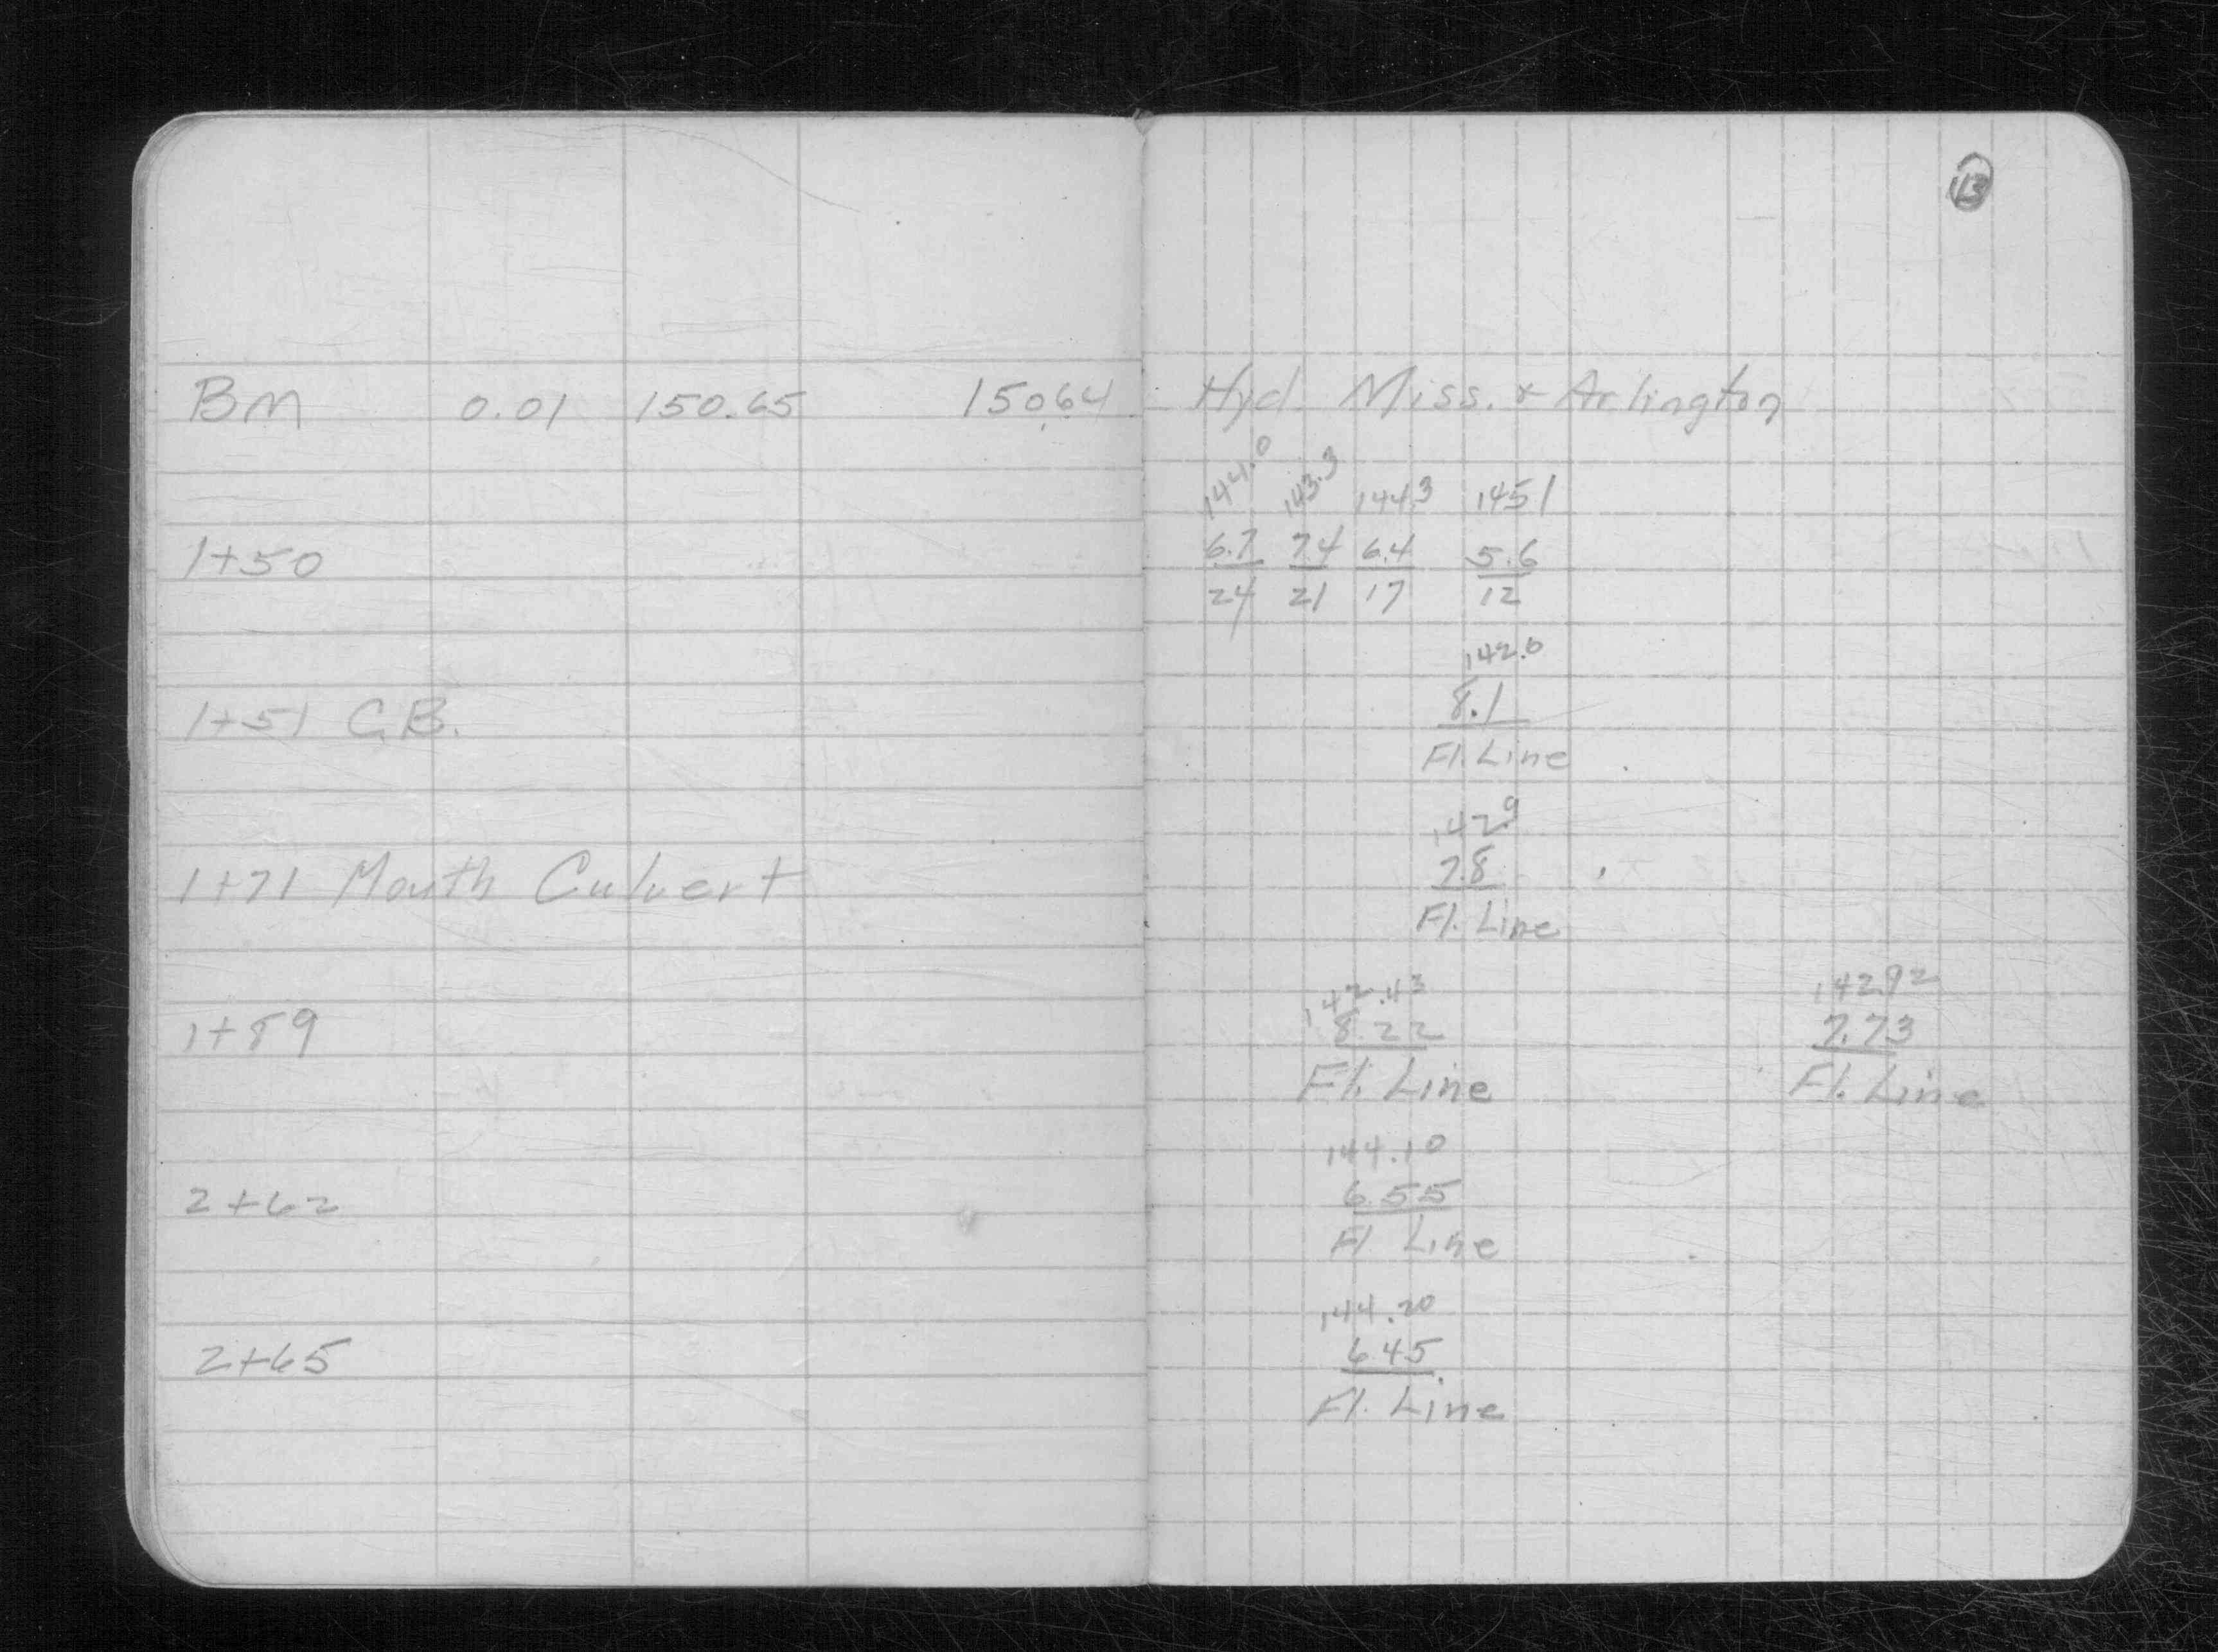 13
BM 0.01 150.65 150.64 Hyd. Miss. & Arlington
144.0 143.3 144.3 145.1
1+50 6.7 7.4 6.4 5.6
24 21 17 12
142.6
1+51 C.B. 8.1
Fl. Line
142.9
1+71 Mouth Culvert 7.8
Fl. Line
142.43 142.92
1+89 8.22 7.73
Fl. Line Fl. Line
144.10
2+62 6.55
Fl. Line
144.20
2+65 6.45
Fl. Line